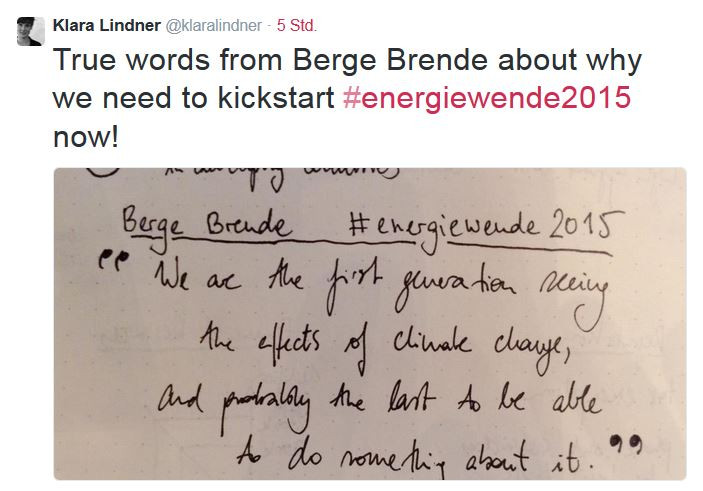 Klara Lindner @klaralindner · 5 Std.
True words from Berge Brende about why
we need to kickstart #energiewende2015
now!
in developing countries
Berge Brende #energiewende 2015
"We are the first generation seeing
the effects of climate change,
and probably the last to be able
to do something about it."